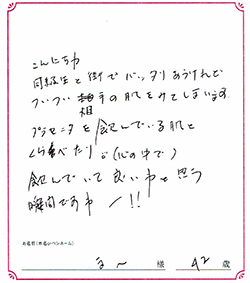 こんにちわ
同級生と街でバッタリあうけれど
ついつい相手の肌をみてしまいます。
プラセンタを飲んでいる肌と
くらべたり。(心の中で)
飲んでいて良いわと思う
瞬間ですわー!!
お名前(本名orペンネーム)
まー 様 42歳